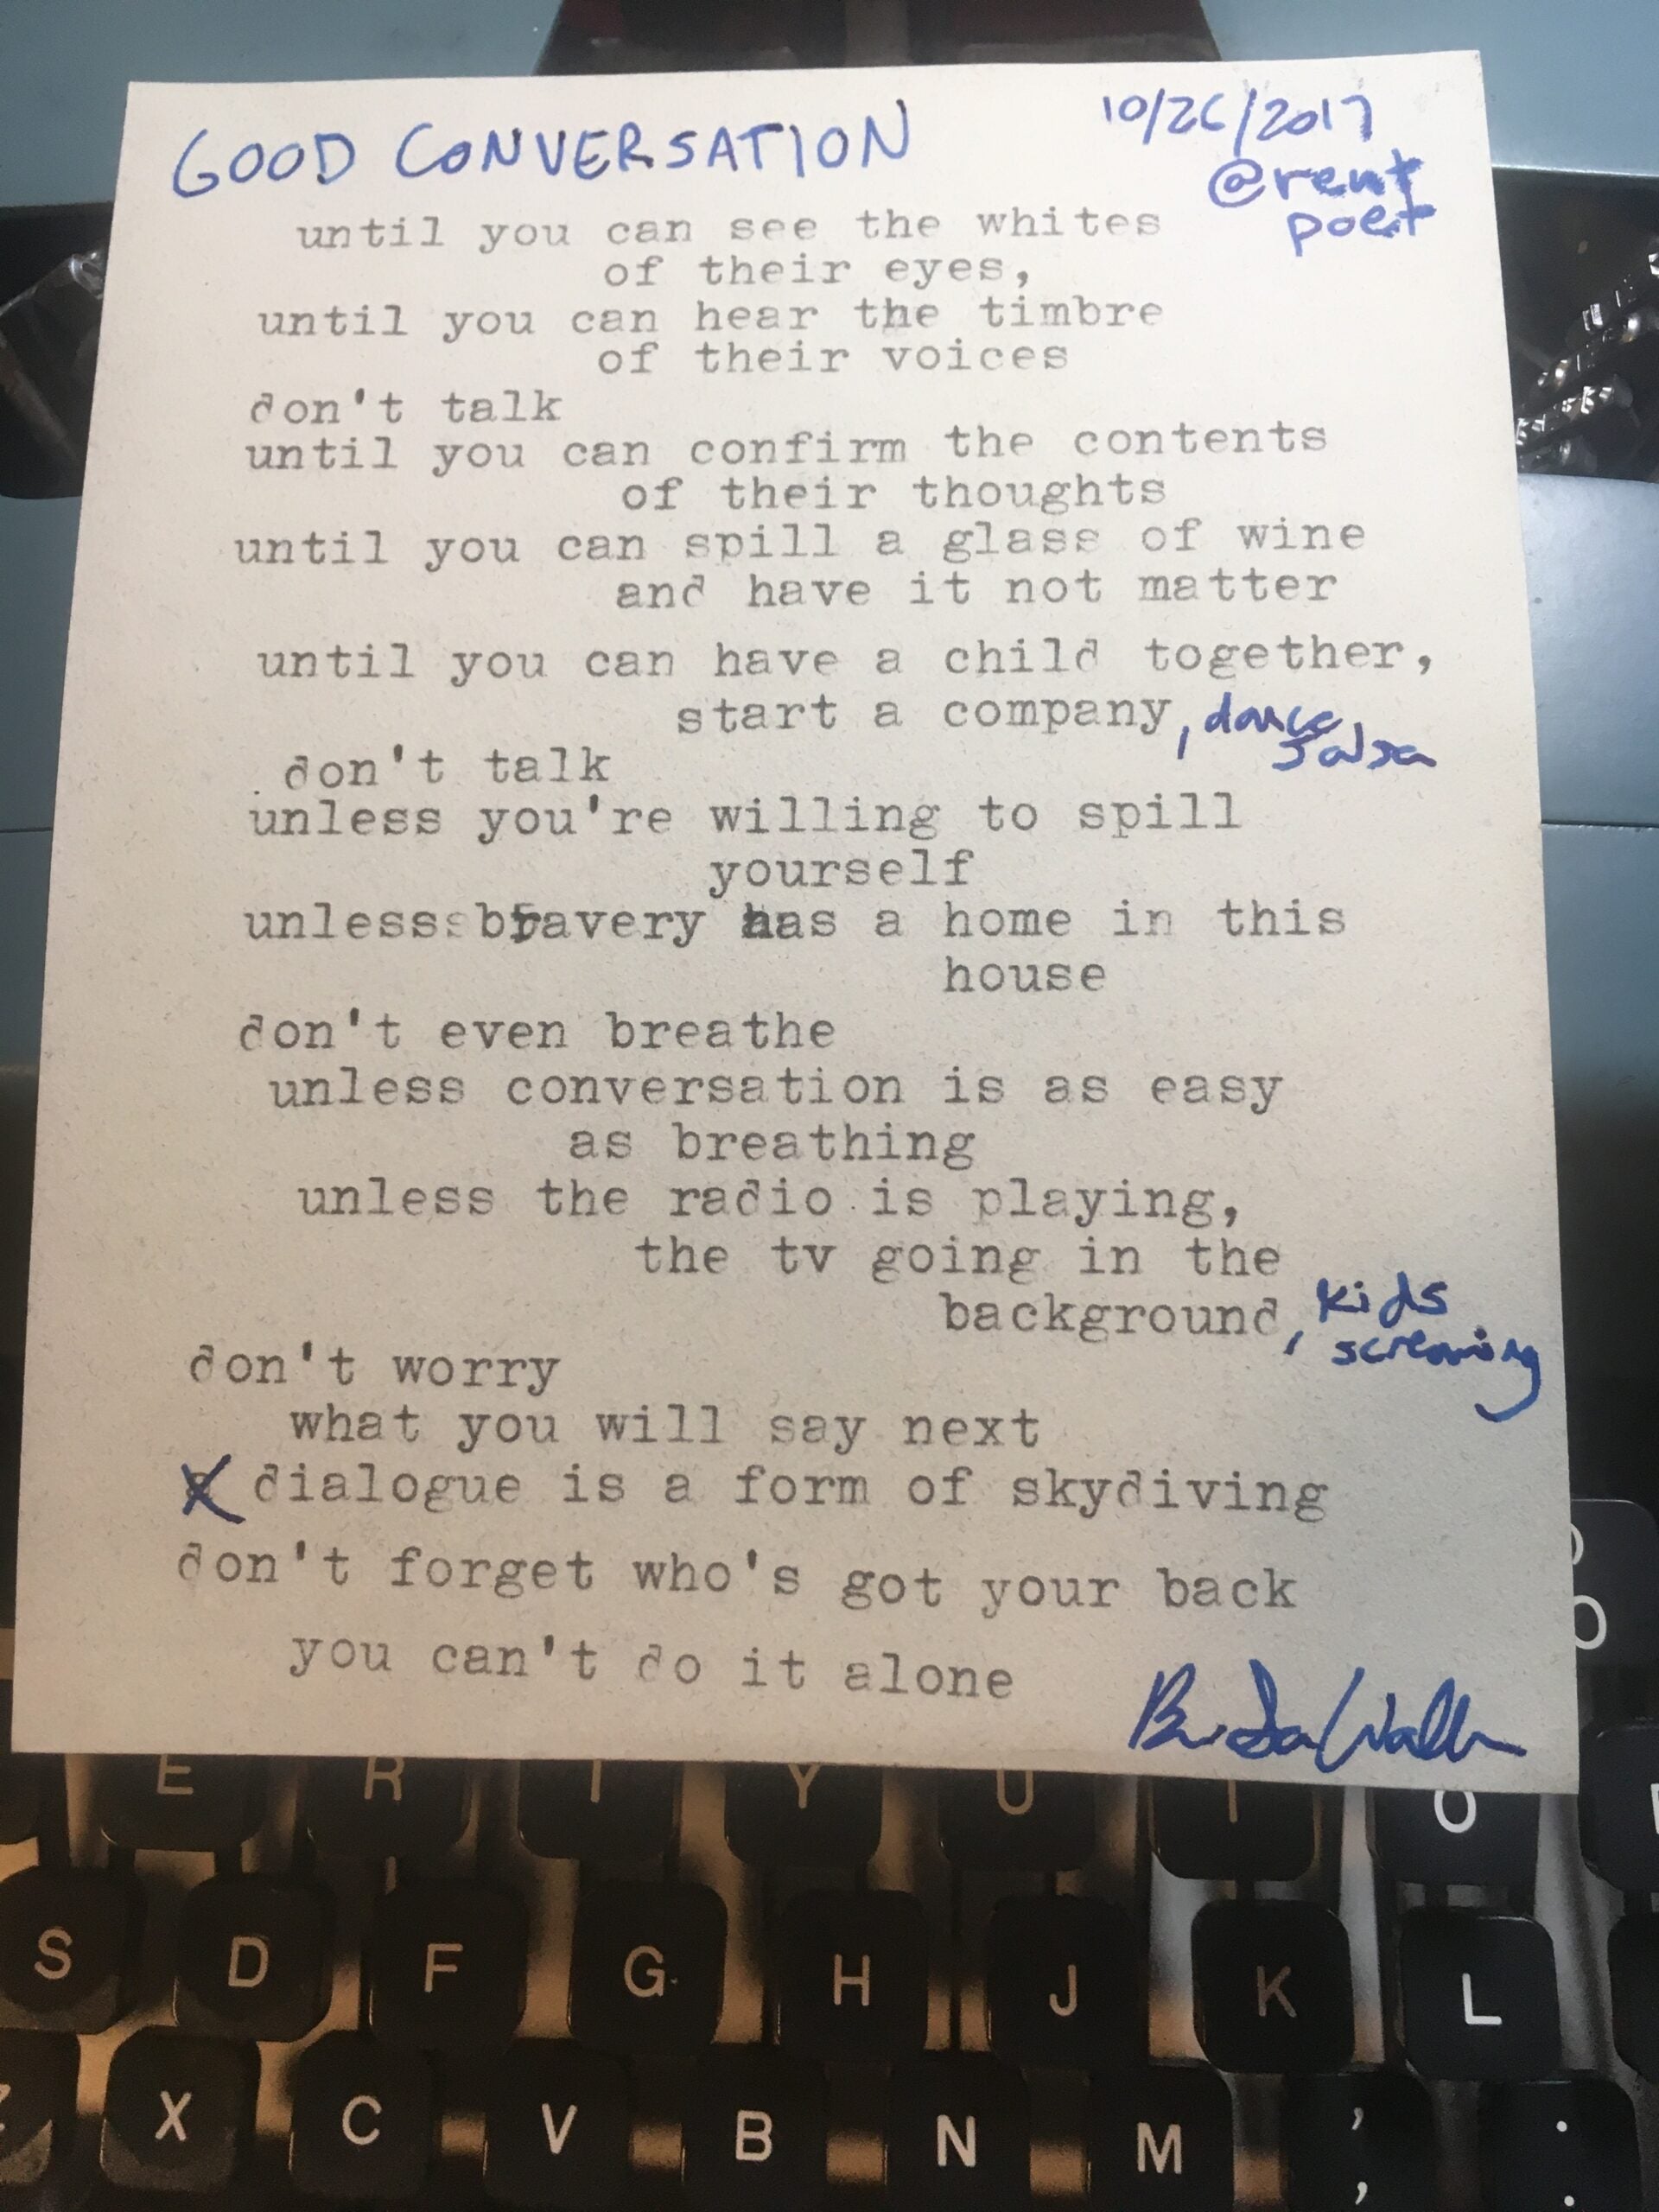 GOOD CONVERSATION
10/26/2017
@rent
poet
until you can see the whites
of their eyes,
until you can hear the timbre
of their voices
don't talk
until you can confirm the contents
of their thoughts
until you can spill a glass of wine
and have it not matter
until you can have a child together,
start a company, dance
salsa
don't talk
unless you're willing to spill
yourself
unless bravery has a home in this
house
don't even breathe
unless conversation is as easy
as breathing
unless the radio is playing,
the tv going in the
background, kids
screaming
don't worry
what you will say next
dialogue is a form of skydiving
don't forget who's got your back
you can't do it alone
E R T Y U I O
S D F G H J K L
X C V B N M , :
;